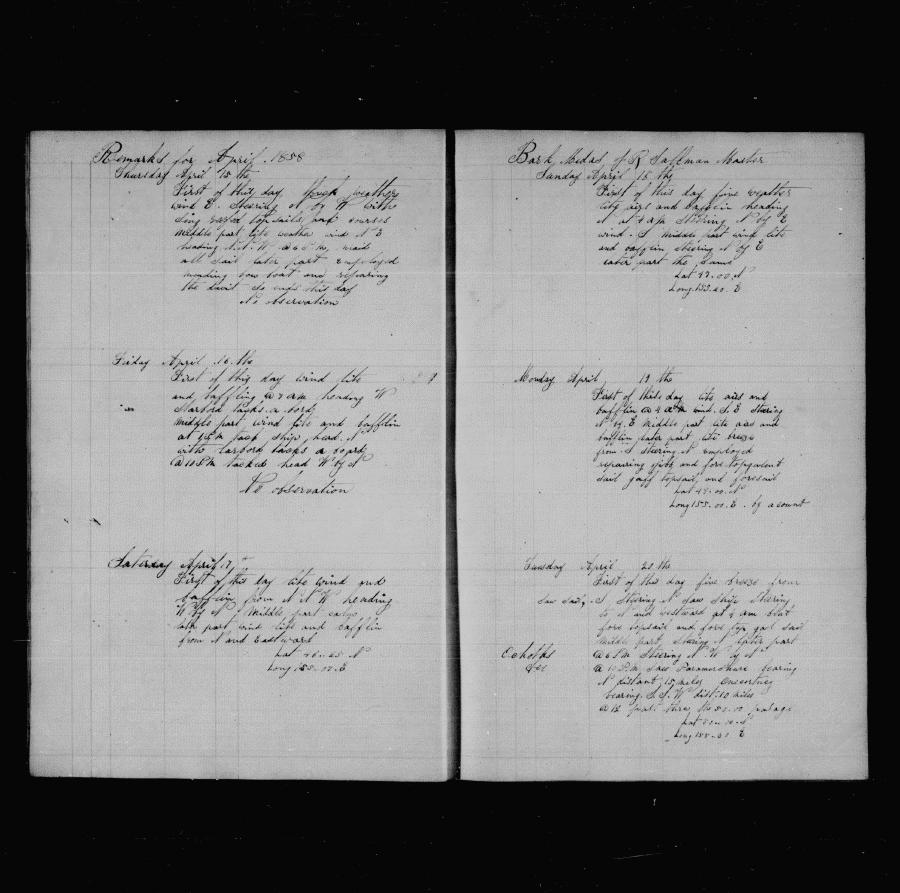 Remarks for April 1858
Thursday April 15 the
First of this day thick weather
wind E. Steering N by W with
sing topsails and courses
middle part lite weather wind N E
heading N.N.W @ 6 P.M, maid
all sail later part employed
mending bow boat and repairing
the davit So ends this day
No observation
Friday April 16 the
First of this day wind lite
and baffling @ 7 am heading W
Starbord tacks a bord
middle part wind lite and bafflin
at PM tack ship, head N
with larbord tacks a board
@ 10 P.M tacked head W by N
No observation
Saterday April 17
First of this day lite wind and
bafflin from N N W heading
W by N Middle part calm
later part wind lite and bafflin
from N and Eastward
Lat N
Long 155-00 E
Bark, Midas, of R Saltman Master
Sunday April 18 the
First of this day fine weather
lity airs and bafflin heading
N at 4 am Steering N by E
wind. S Middle part wind lite
and bafflin steering N by E
Later part the same
Lat 47.00 N
Long 155.20. E
Monday April 19 the
First of this day lite airs and
bafflin @ 4 am wind. S. E Steering
N by. E Middle part lite airs and
bafflin later part lite breeze
from. S Steering N employed
repairing gibb and fore topgalent
sail gaff topsail, and foresail
Lat 49-00. N
Long 155-00. E. by acount
Tuesday April 20 the
First of this day fine breeze from
Saw Sail,- S, Steering N Saw Ship Steering
to N and westward at 4 am
fore topsail and fore top gal sail
middle part, Steering N Later part
Ochotks @ 6 P.M Steering N W by N
Sea @ 10 P.M, Saw bearing
N distant 15 miles
bearing. S S. W dist-10 miles
@ 12 thru, the 50.00 pasage
Lat
Long 155-30 E